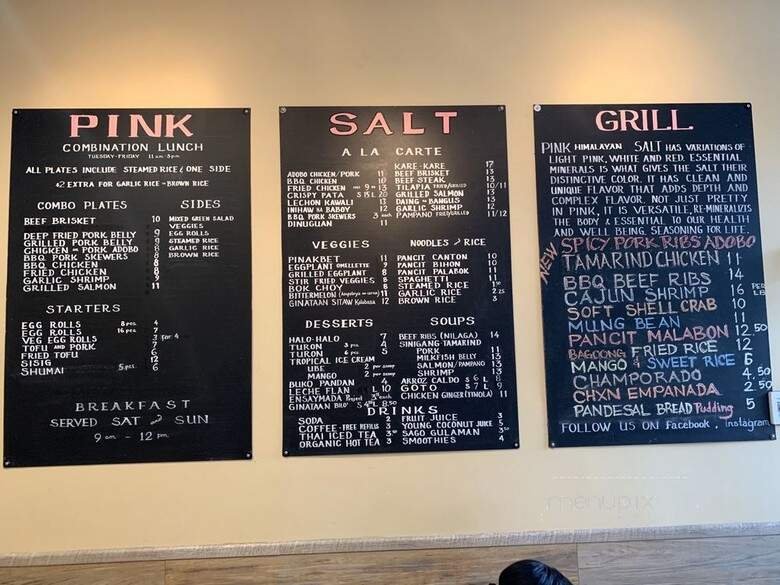 PINK
COMBINATION LUNCH
TUESDAY-FRIDAY 11am-3pm
ALL PLATES INCLUDE STEAMED RICE & ONE SIDE
$2 EXTRA FOR GARLIC RICE - BROWN RICE
COMBO PLATES
BEEF BRISKET 10
DEEP FRIED PORK BELLY 9
GRILLED PORK BELLY 9
CHICKEN OR PORK ADOBO
BBQ PORK SKEWERS 8
BBQ CHICKEN 8
FRIED CHICKEN 8
GARLIC SHRIMP
GRILLED SALMON 11
SIDES
MIXED GREEN SALAD
VEGGIES
EGG ROLLS
STEAMED RICE
GARLIC RICE
BROWN RICE
STARTERS
EGG ROLLS 8pcs. 4
EGG ROLLS 16pcs. 7
VEG EGG ROLLS for 4
TOFU AND PORK 7
FRIED TOFU 6
SISIG 12
SHUMAI 5pcs. 6
BREAKFAST
SERVED SAT SUN
9am - 12pm
SALT
A LA CARTE
ADOBO CHICKEN/PORK 11
BBQ CHICKEN 10
FRIED CHICKEN 9 13
CRISPY PATA S15 L 20
LECHON KAWALI 13
INIHAW NA BABOY 12
BBQ PORK SKEWERS 3 each
DINUGUAN 11
KARE-KARE 17
BEEF BRISKET 13
BEEF STEAK 13
TILAPIA FRIED/GRILLED 10/11
GRILLED SALMON 13
DAING NA BANGUS 13
GARLIC SHRIMP 13
PAMPANO FRIED/GRILLED 11/12
VEGGIES
PINAKBET 11
EGGPLANT OMELLETTE 9
GRILLED EGGPLANT 8
STIR FRIED VEGGIES 8
BOK CHOY 8
BITTERMELON 11
GINATAAN SITAW Kalabasa 12
NOODLES & RICE
PANCIT CANTON 10
PANCIT BIHON 10
PANCIT PALABOK 11
SPAGHETTI 11
STEAMED RICE 1.50
GARLIC RICE 2.25
BROWN RICE 3
DESSERTS
HALO-HALO 7
TURON 3 pcs. 4
TURON 6 pcs. 5
TROPICAL ICE CREAM
UBE 2 per scoop
MANGO 2 per scoop
BUKO PANDAN 4
LECHE FLAN L 10
ENSAYMADA 3 each
GINATAAN BILO' S 4.50 L 8.50
SOUPS
BEEF RIBS (NILAGA) 14
SINIGANG TAMARIND
PORK 11
MILKFISH BELLY 13
SALMON/PAMPANO 13
SHRIMP 13
ARROZ CALDO S 6 L 8
GOTO S 7 L 9
CHICKEN GINGER (TINOLA) 11
DRINKS
SODA 2
COFFEE - FREE REFILLS 3
THAI ICED TEA 3.50
ORGANIC HOT TEA 3
FRUIT JUICE 3
YOUNG COCONUT JUICE 5
SAGO GULAMAN 3.50
SMOOTHIES 4
GRILL
PINK HIMALAYAN SALT HAS VARIATIONS OF
LIGHT PINK, WHITE AND RED. ESSENTIAL
MINERALS IS WHAT GIVES THE SALT THEIR
DISTINCTIVE COLOR. IT HAS CLEAN AND
UNIQUE FLAVOR THAT ADDS DEPTH AND
COMPLEX FLAVOR. NOT JUST PRETTY
IN PINK, IT IS VERSATILE, RE-MINERALIZES
THE BODY & ESSENTIAL TO OUR HEALTH
AND WELL BEING. SEASONING FOR LIFE.
NEW
SPICY PORK RIBS ADOBO
TAMARIND CHICKEN 11
BBQ BEEF RIBS 14
CAJUN SHRIMP 16 PER LB
SOFT SHELL CRAB 10
MUNG BEAN 11
PANCIT MALABON 12.50
BAGOONG FRIED RICE 12
MANGO & SWEET RICE 6
CHAMPORADO 4.50
CHXN EMPANADA 2.50
PANDESAL BREAD Pudding 5
FOLLOW US ON Facebook, Instagram
menupix